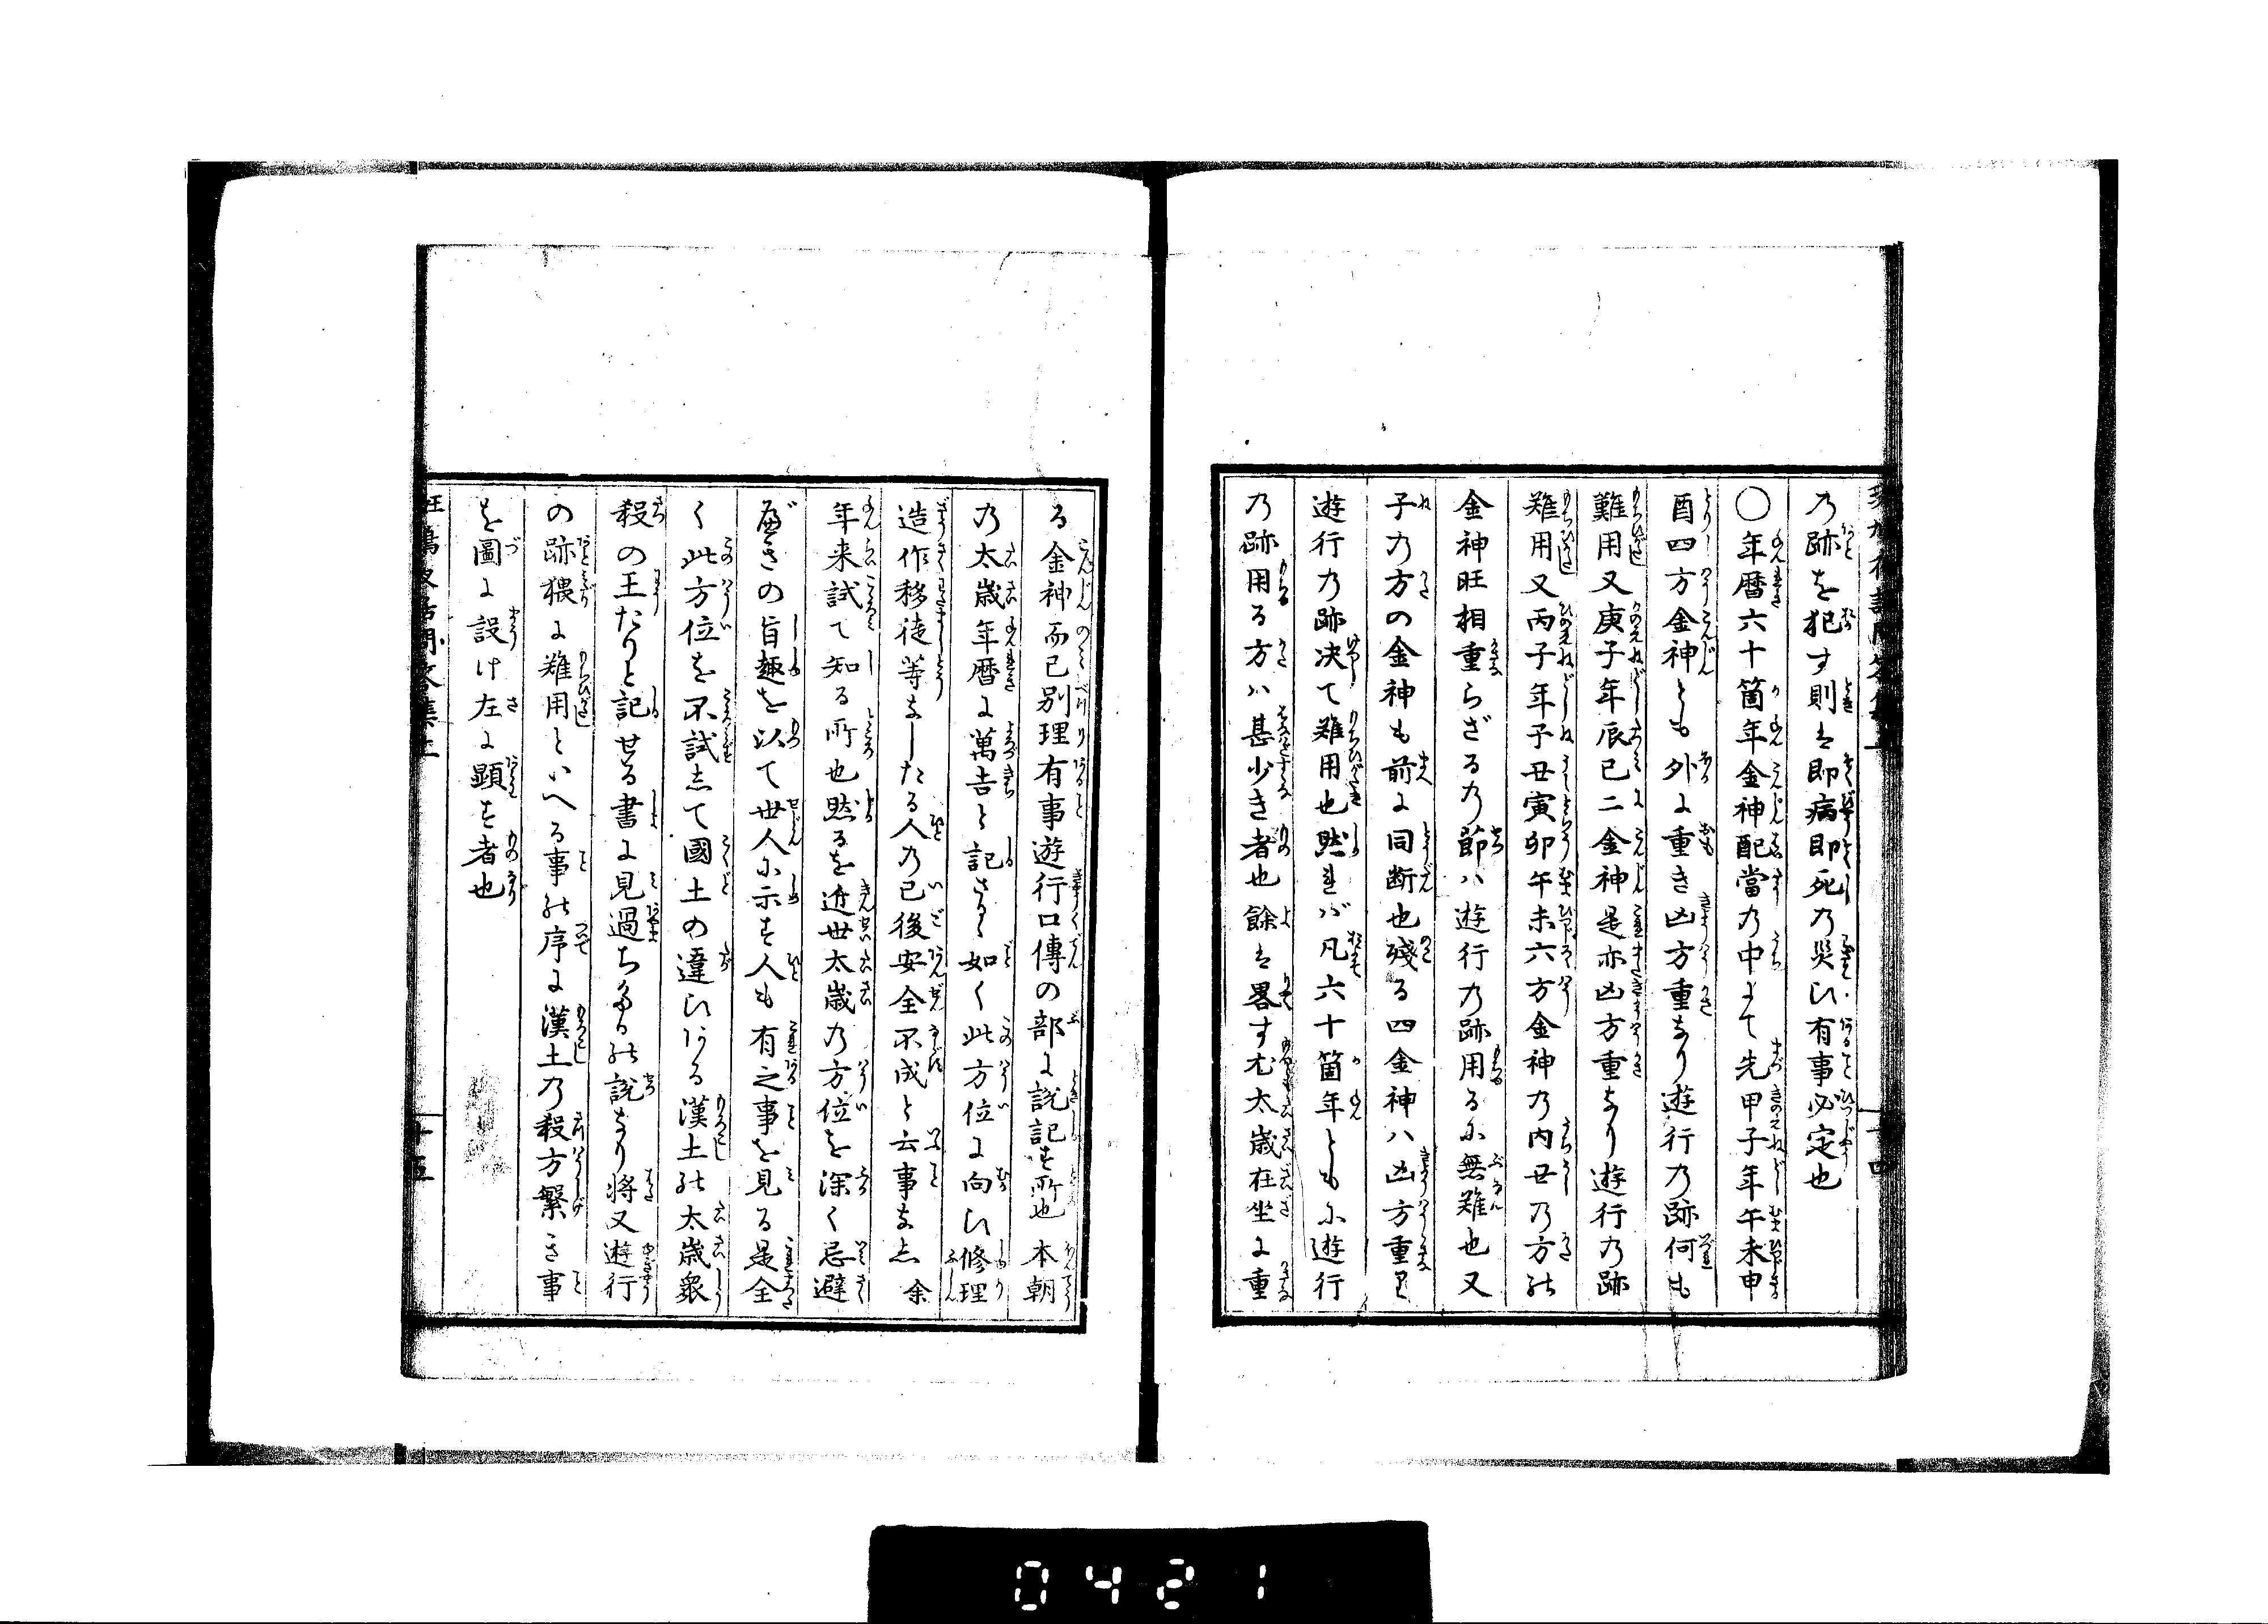 乃跡を犯す則は即病即死乃災ひ有事必定也
〇年暦六十箇年金神配當乃中にて先甲子年午未申
酉四方金神とも外に重き凶方重なり遊行乃跡何も
難用又庚子年辰巳二金神是亦凶方重なり遊行乃跡
難用又丙子年子丑寅卯午未六方金神乃内丑乃方の
金神旺相重らざる乃節ハ遊行乃跡用るに無難也又
子乃方の金神も前に同断也殘る四金神ハ凶方重り
遊行乃跡决て難用也然れバ凡六十箇年ともに遊行
乃跡用る方ハ甚少き者也餘は畧す尤太歳在坐に重
る金神而已別理有事遊行口傳の部に説記す所也本朝
乃太歳年暦に萬吉と記さる如く此方位に向ひ修理
造作移徙等なしたる人乃已後安全不成と云事なし余
年来試て知る所也然るを近世太歳乃方位を深く忌避
べきの旨趣を以て世人に示す人も有之事を見る是全
く此方位を不試して國土の違ひある漢土の太歳衆
殺の王たりと記せる書に見過ちたるの説なり將又遊行
の跡猥に難用といへる事の序に漢土乃殺方繁き事
を圖に設け左に顕す者也
十四
十五
0421